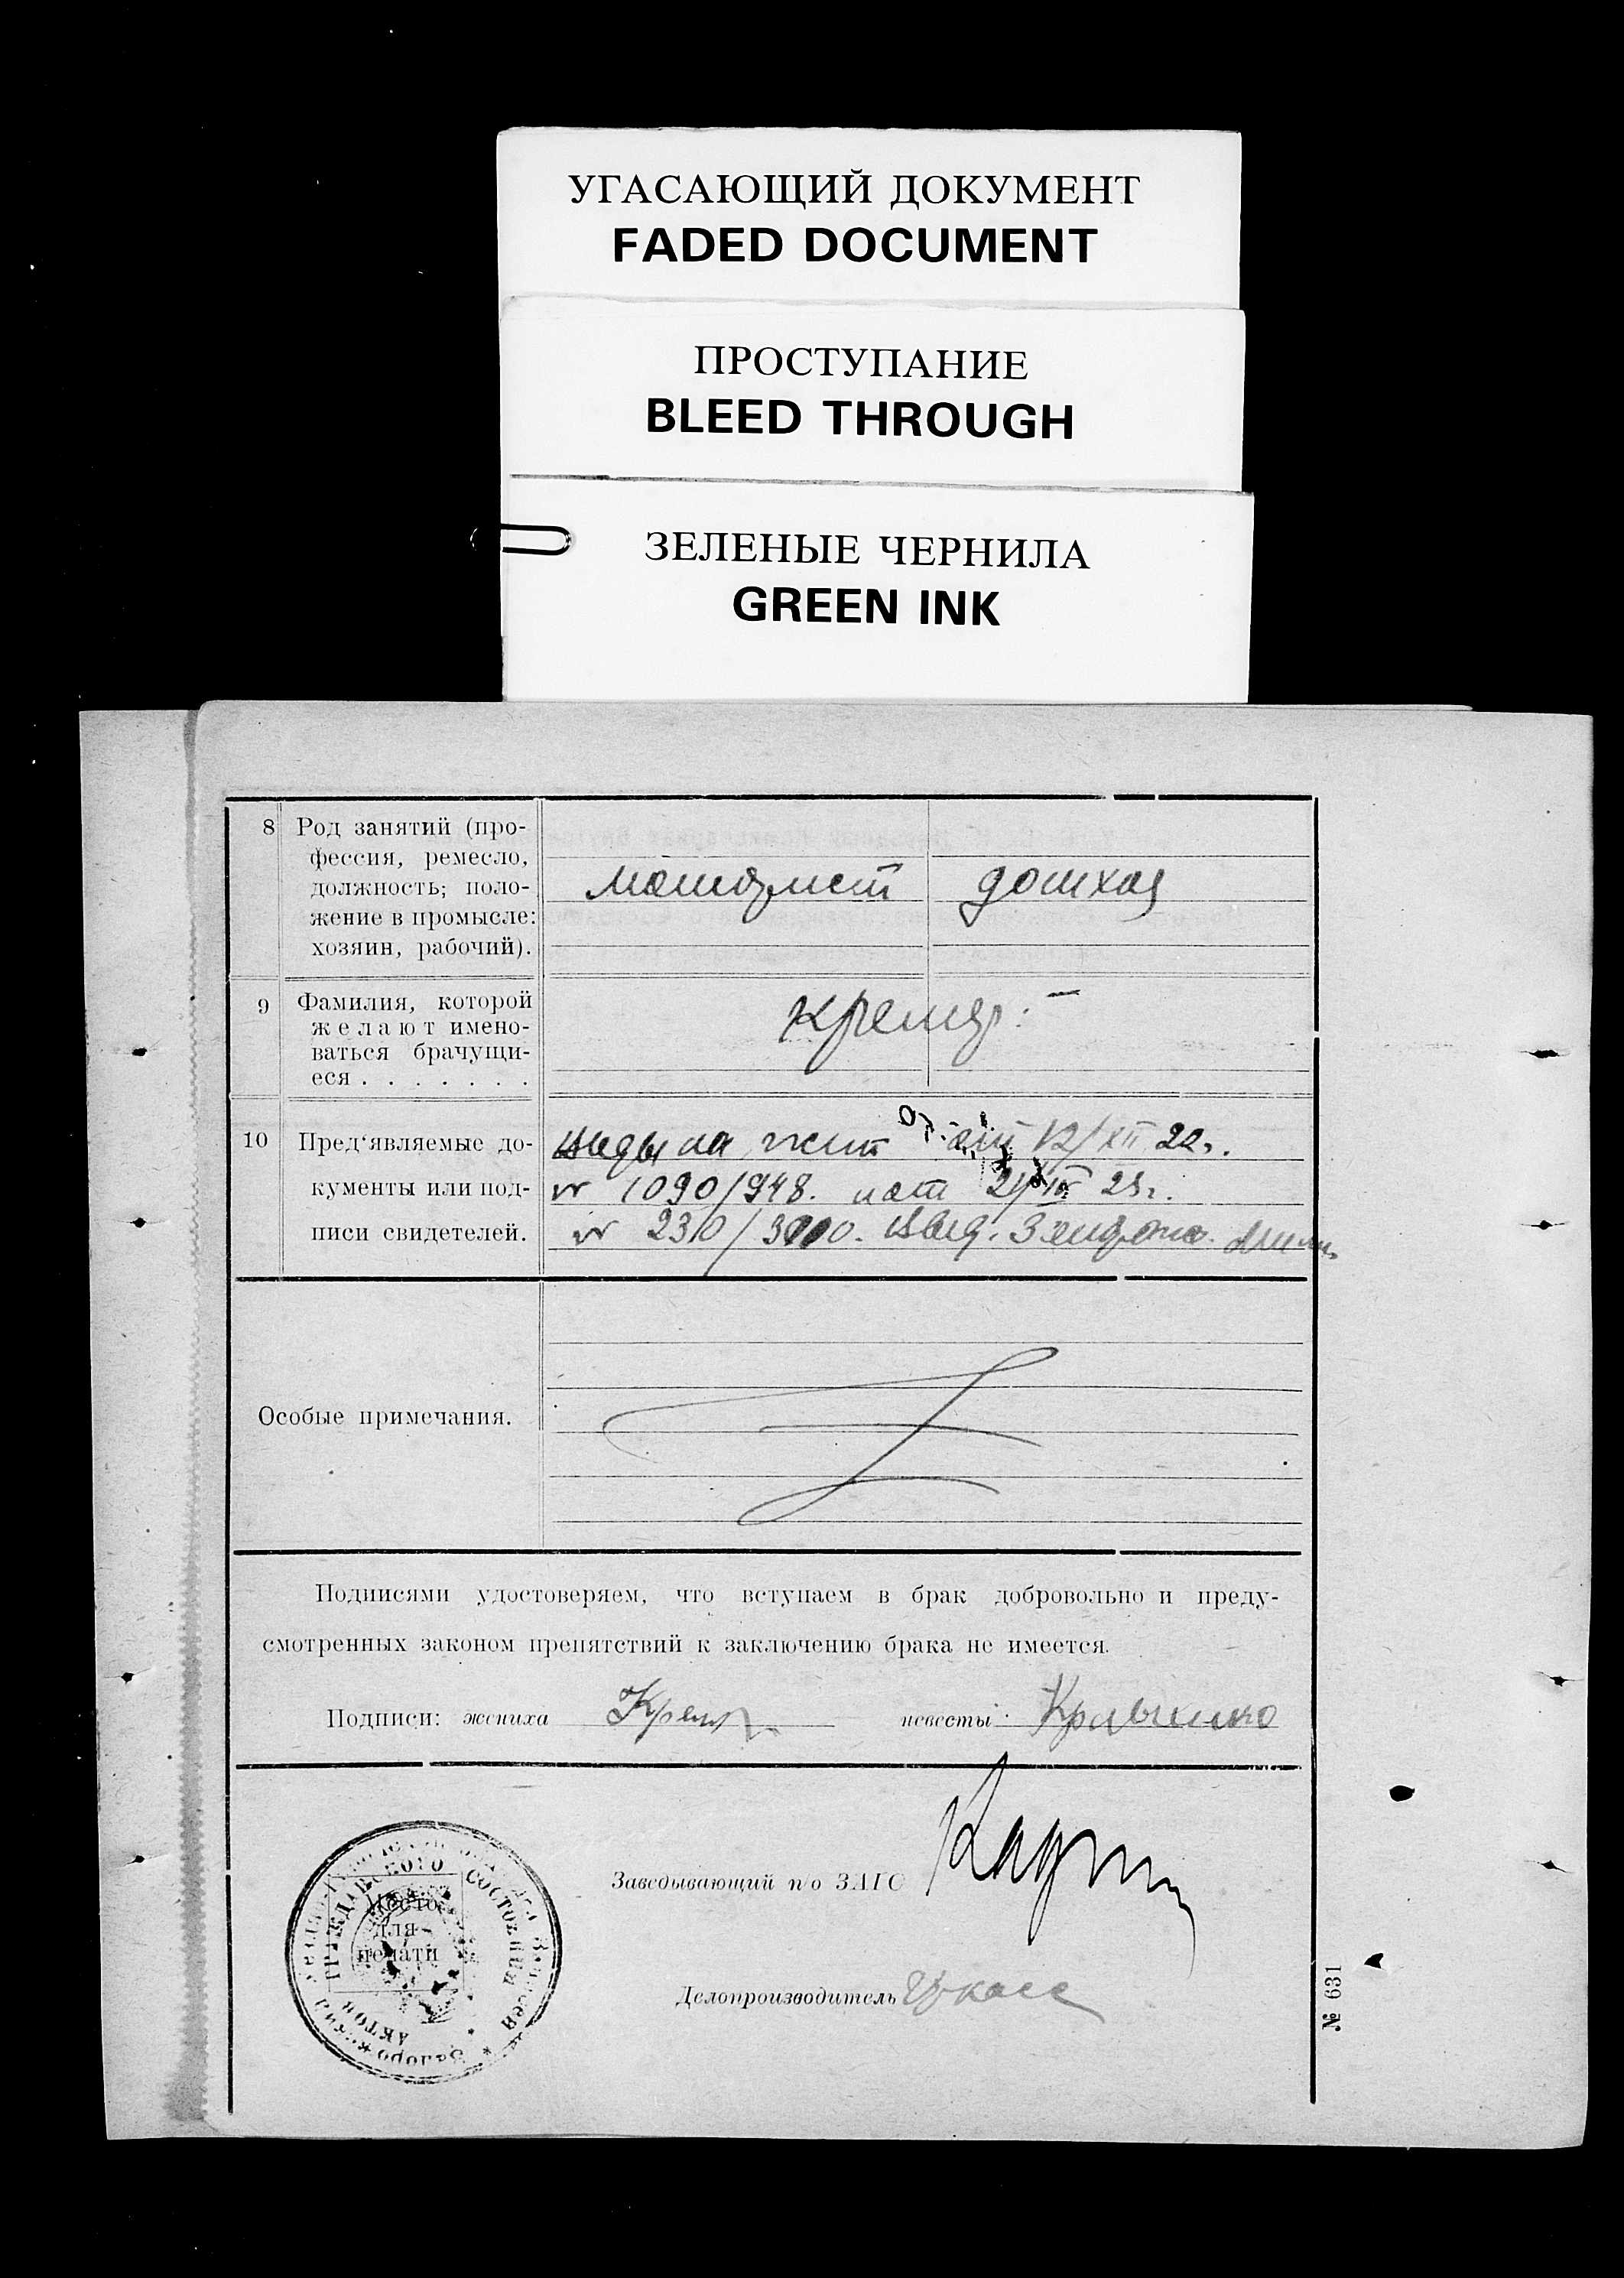 УГАСАЮЩИЙ ДОКУМЕНТ
FADED DOCUMENT
ПРОСТУПАНИЕ
BLEED THROUGH
ЗЕЛЕНЫЕ ЧЕРНИЛА
GREEN INK
8 Род занятий (про-
фессия, ремесло,
должность; поло-
жение в промысле:
хозяин, рабочий).
машинист домхоз
9 Фамилия, которой
желают имено-
ваться брачущи-
еся . . . . . . .
Кремер
10 Пред'являемые до-
кументы или под-
писи свидетелей.
виды на жит 12/XII 22г.
№ 1090/948. 23г.
№ 230/3000.
Особые примечания.
Подписями удостоверяем, что вступаем в брак добровольно и преду-
смотренных законом препятствий к заключению брака не имеется.
Подписи: жениха Кремер невесты:
Заведывающий п/о ЗАГС
Делопроизводитель
ГРАЖДАНСКОГО СОСТОЯНИЯ
АКТОВ
Место
для
печати
№ 631